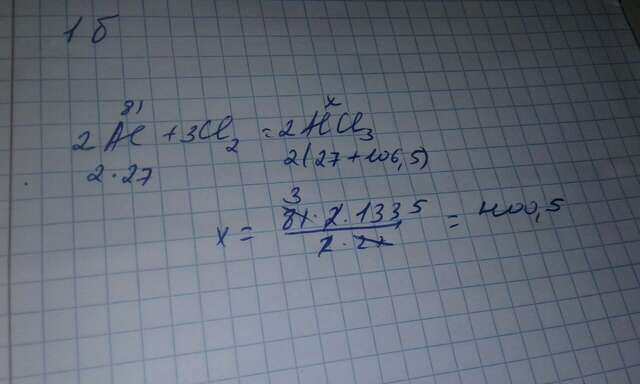 1 б
81 x
2Al + 3Cl2 = 2AlCl3
2·27 2(27+106,5)
3
x = 81·2·133,5 / 2·27 = 400,5